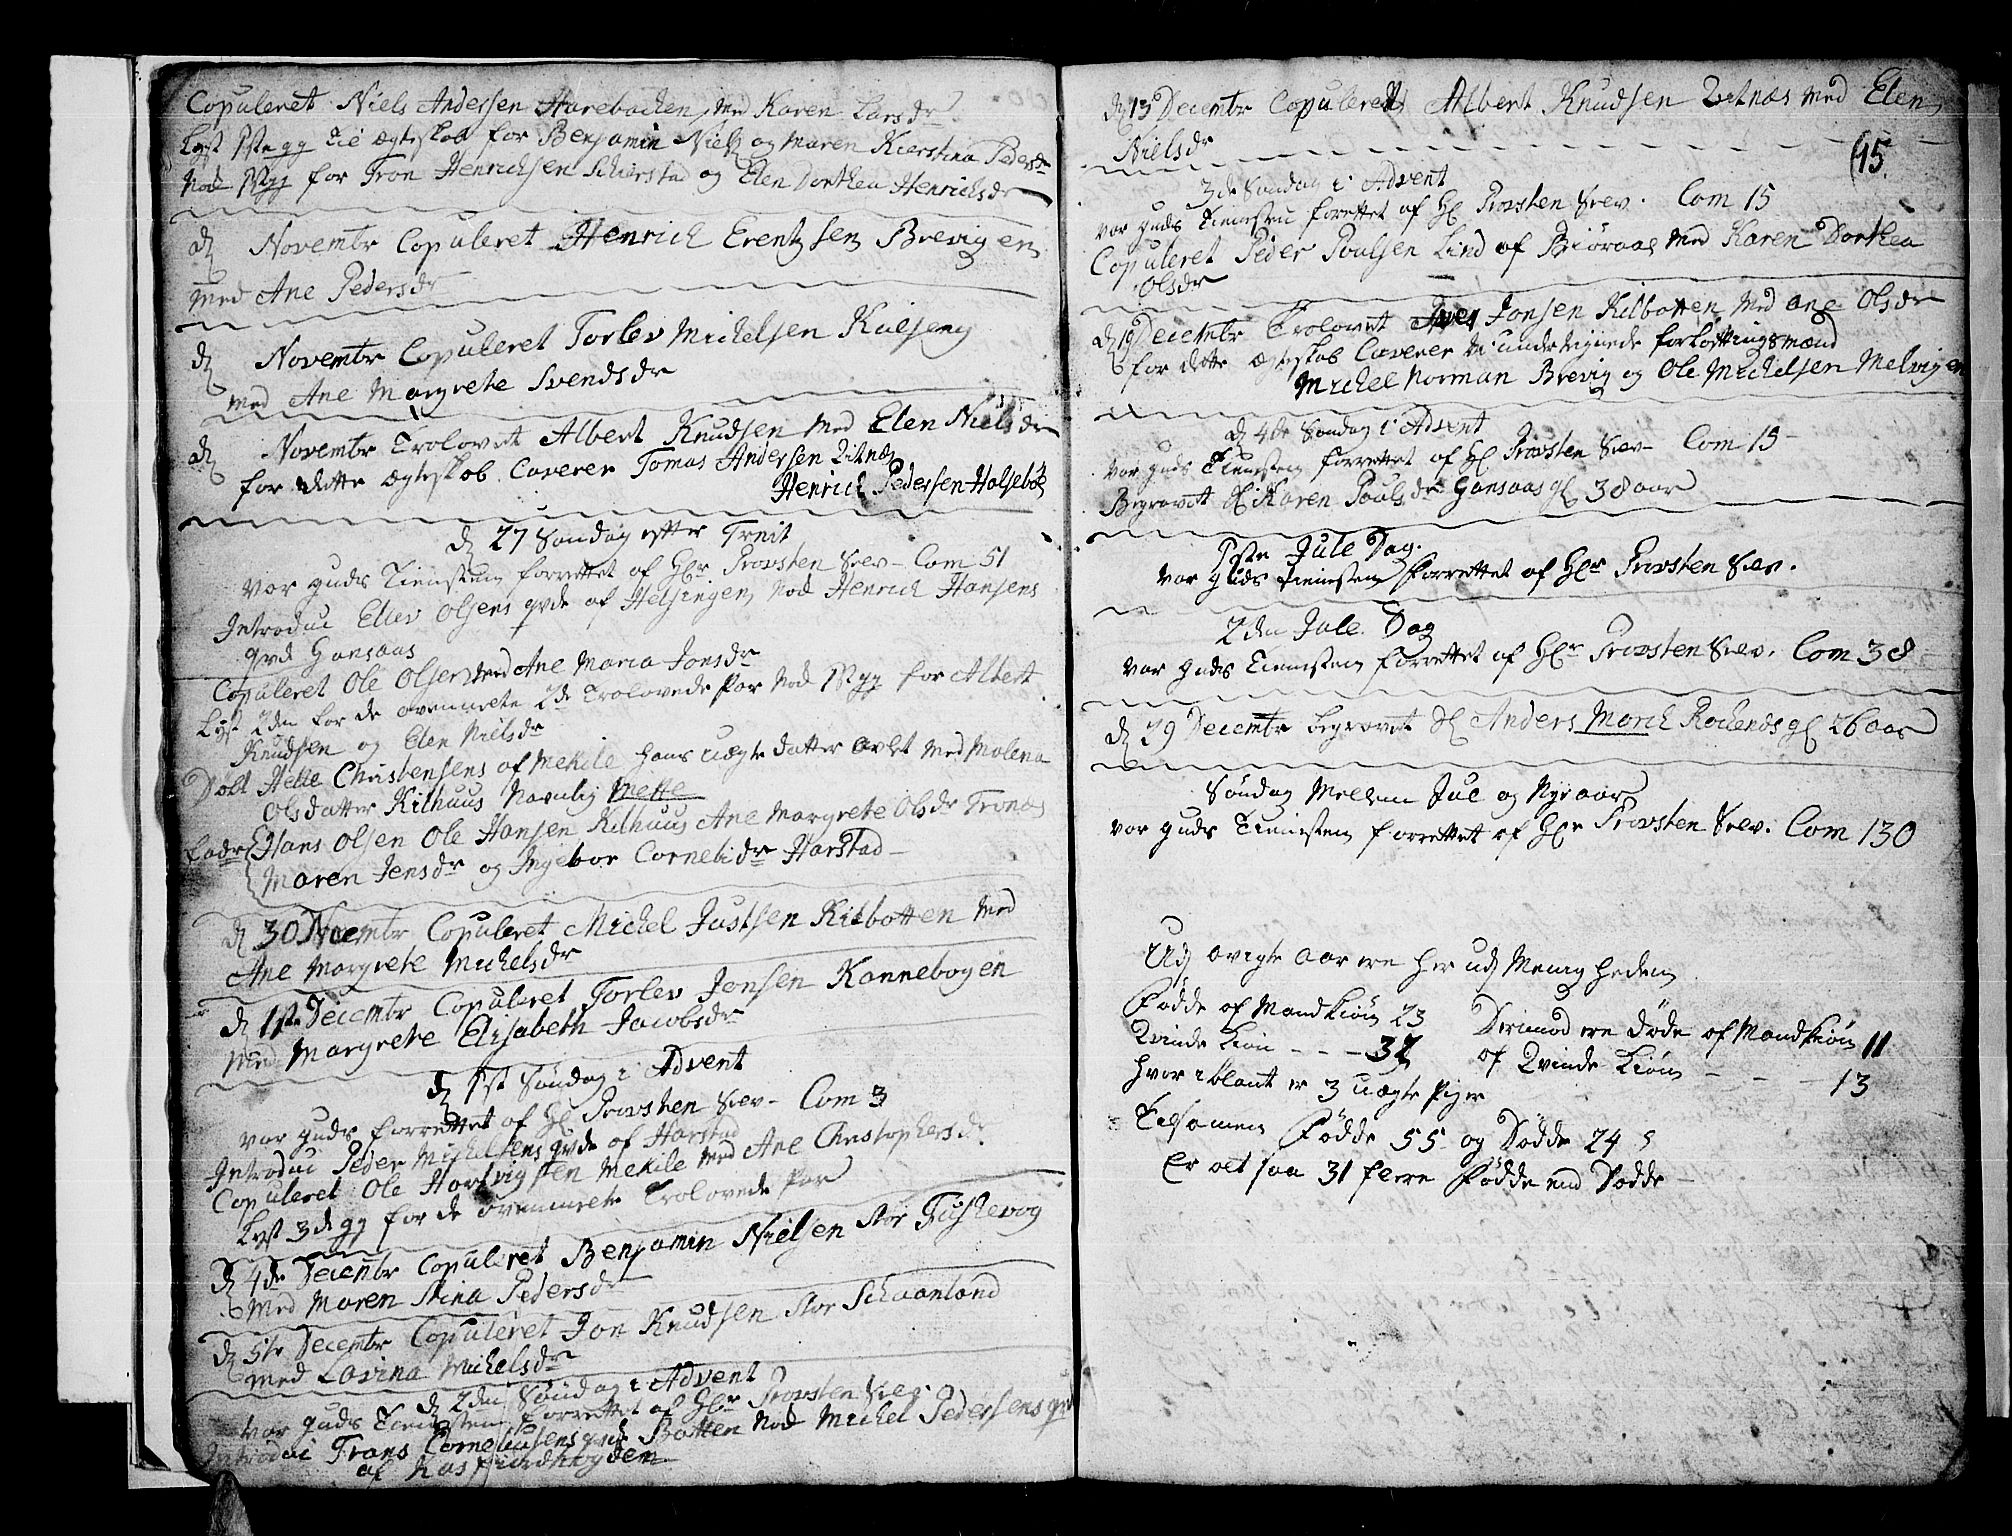 Copuleret Niels Andersen Harebacken med Karen Larsdr
Lyst 1ste gg til ægteskab for Benjamin Niels og Maren Kierstina Pedersdr
Nok 1ste gg for Tron Henrichsen Schierstad og Elen Dorthea Henrichsdr
d Novembr Copuleret Henrich Erentzsen Brevigen
med Ane Pedersdr
d Novembr Copuleret Torlev Michelsen Kulseng
med Ane Margrete Svendsdr
d Novembr Trolovet Albert Knudsen med Elen Nielsdr
for dette ægteskab Caverer Tomas Andersen Zitnæs
Henrich Pedersen Halsebøe
d 27 Søndag efter Trnit
var guds Tienesten forrettet af Hr Provsten Siev - Com 51
Introduc Ellev Olsens qvde af Helsingen, Nok Henrich Hansens
qvde Gansaas
Copuleret Ole Olsen med Ane Maria Jonsdr
Lyst 2den for de ovenmelte 2de Trolovede Par Nok 1ste gg for Albert
Knudsen og Elen Nielsdr
Døbt Helle Christensens af Mekile hans uægte datter avlet med Malena
Olsdatter Kilhuus Navnlig Mette
fadr Hans Olsen Ole Hansen Kilhuus Ane Margrete Olsdr Tronæs
Maren Jensdr og Ingebor Cornelidr Harstad -
d 30 Novembr Copuleret Michel Justsen Kilbotten med
Ane Margrete Michelsdr
d 1ste Decembr Copuleret Torlev Jonsen Kannebogen
med Margrete Elisabeth Jacobsdr
d 1st Søndag i Advent
var guds forrettet af Hr Provsten Siev - Com 3
Introduc Peder Michelsens qvde af Harstad
Copuleret Ole Hartvigsen Mekile med Ane Christophersdr
Lyst 3de gg for de ovenmelte Trolovede Par
d 4de Decembr Copuleret Benjamin Nielsen Stor Fuskevog
med Maren Stina Pedersdr
d 5te Decembr Copuleret Jon Knudsen Stor Schaanland
med Lovina Michelsdr
d 2den Søndag i Advent
var guds Tienesten forrettet af Hr Provsten Siev.
Introduc Frans Corneliusens qvde Botten Nok Michel Pedersens qvd
af Kasfiordhøyden
d 13 Decembr Copuleret Albert Knudsen Zitnæs med Elen
Nielsdr
15.
3de Søndag i Advent
var guds Tienesten forrettet af Hr Provsten Siev. Com 15
Copuleret Peder Poulsen Lind af Biøraae med Karen Dorthea
Olsdr
d 19 Decembr Trolovet Iver Jonsen Kilbotten med Ane Olsdr
for dette ægteskab Caverer vi underskrevne forlovtningsmænd
Michel Norman Brevig og Ole Michelsen Melvigen
d 4de Søndag i Advent
var guds Tienesten forrettet af Hr Provsten Siev - Com 15 -
Begravet Karen Poulsdr Gansaas gl 38 aar
1ste Jule Dag.
var guds Tienesten forrettet af Hr Provsten Siev.
2den Jule Dag
var guds Tienesten forrettet af Hr Provsten Siev. Com 38
d 29 Decembr begravet Anders Morch Rochends gl 26 aar
Søndag Mellem Jul og Nyt aar
var guds Tienesten forrettet af Hr Provsten Siev. Com 130
Udj avigte aar ere her udj Menigheden
Fødde af Mandkiøn 23 Derimod ere døde af Mandkiøn 11
Qvinde kiøn - - - 32 af Qvinde kiøn - - - 13
hvor iblant er 3 uægte Piger
Tilsamen Fødde 55 og Dødde 24
Er alt saa 31 flere Fødde end Dødde -